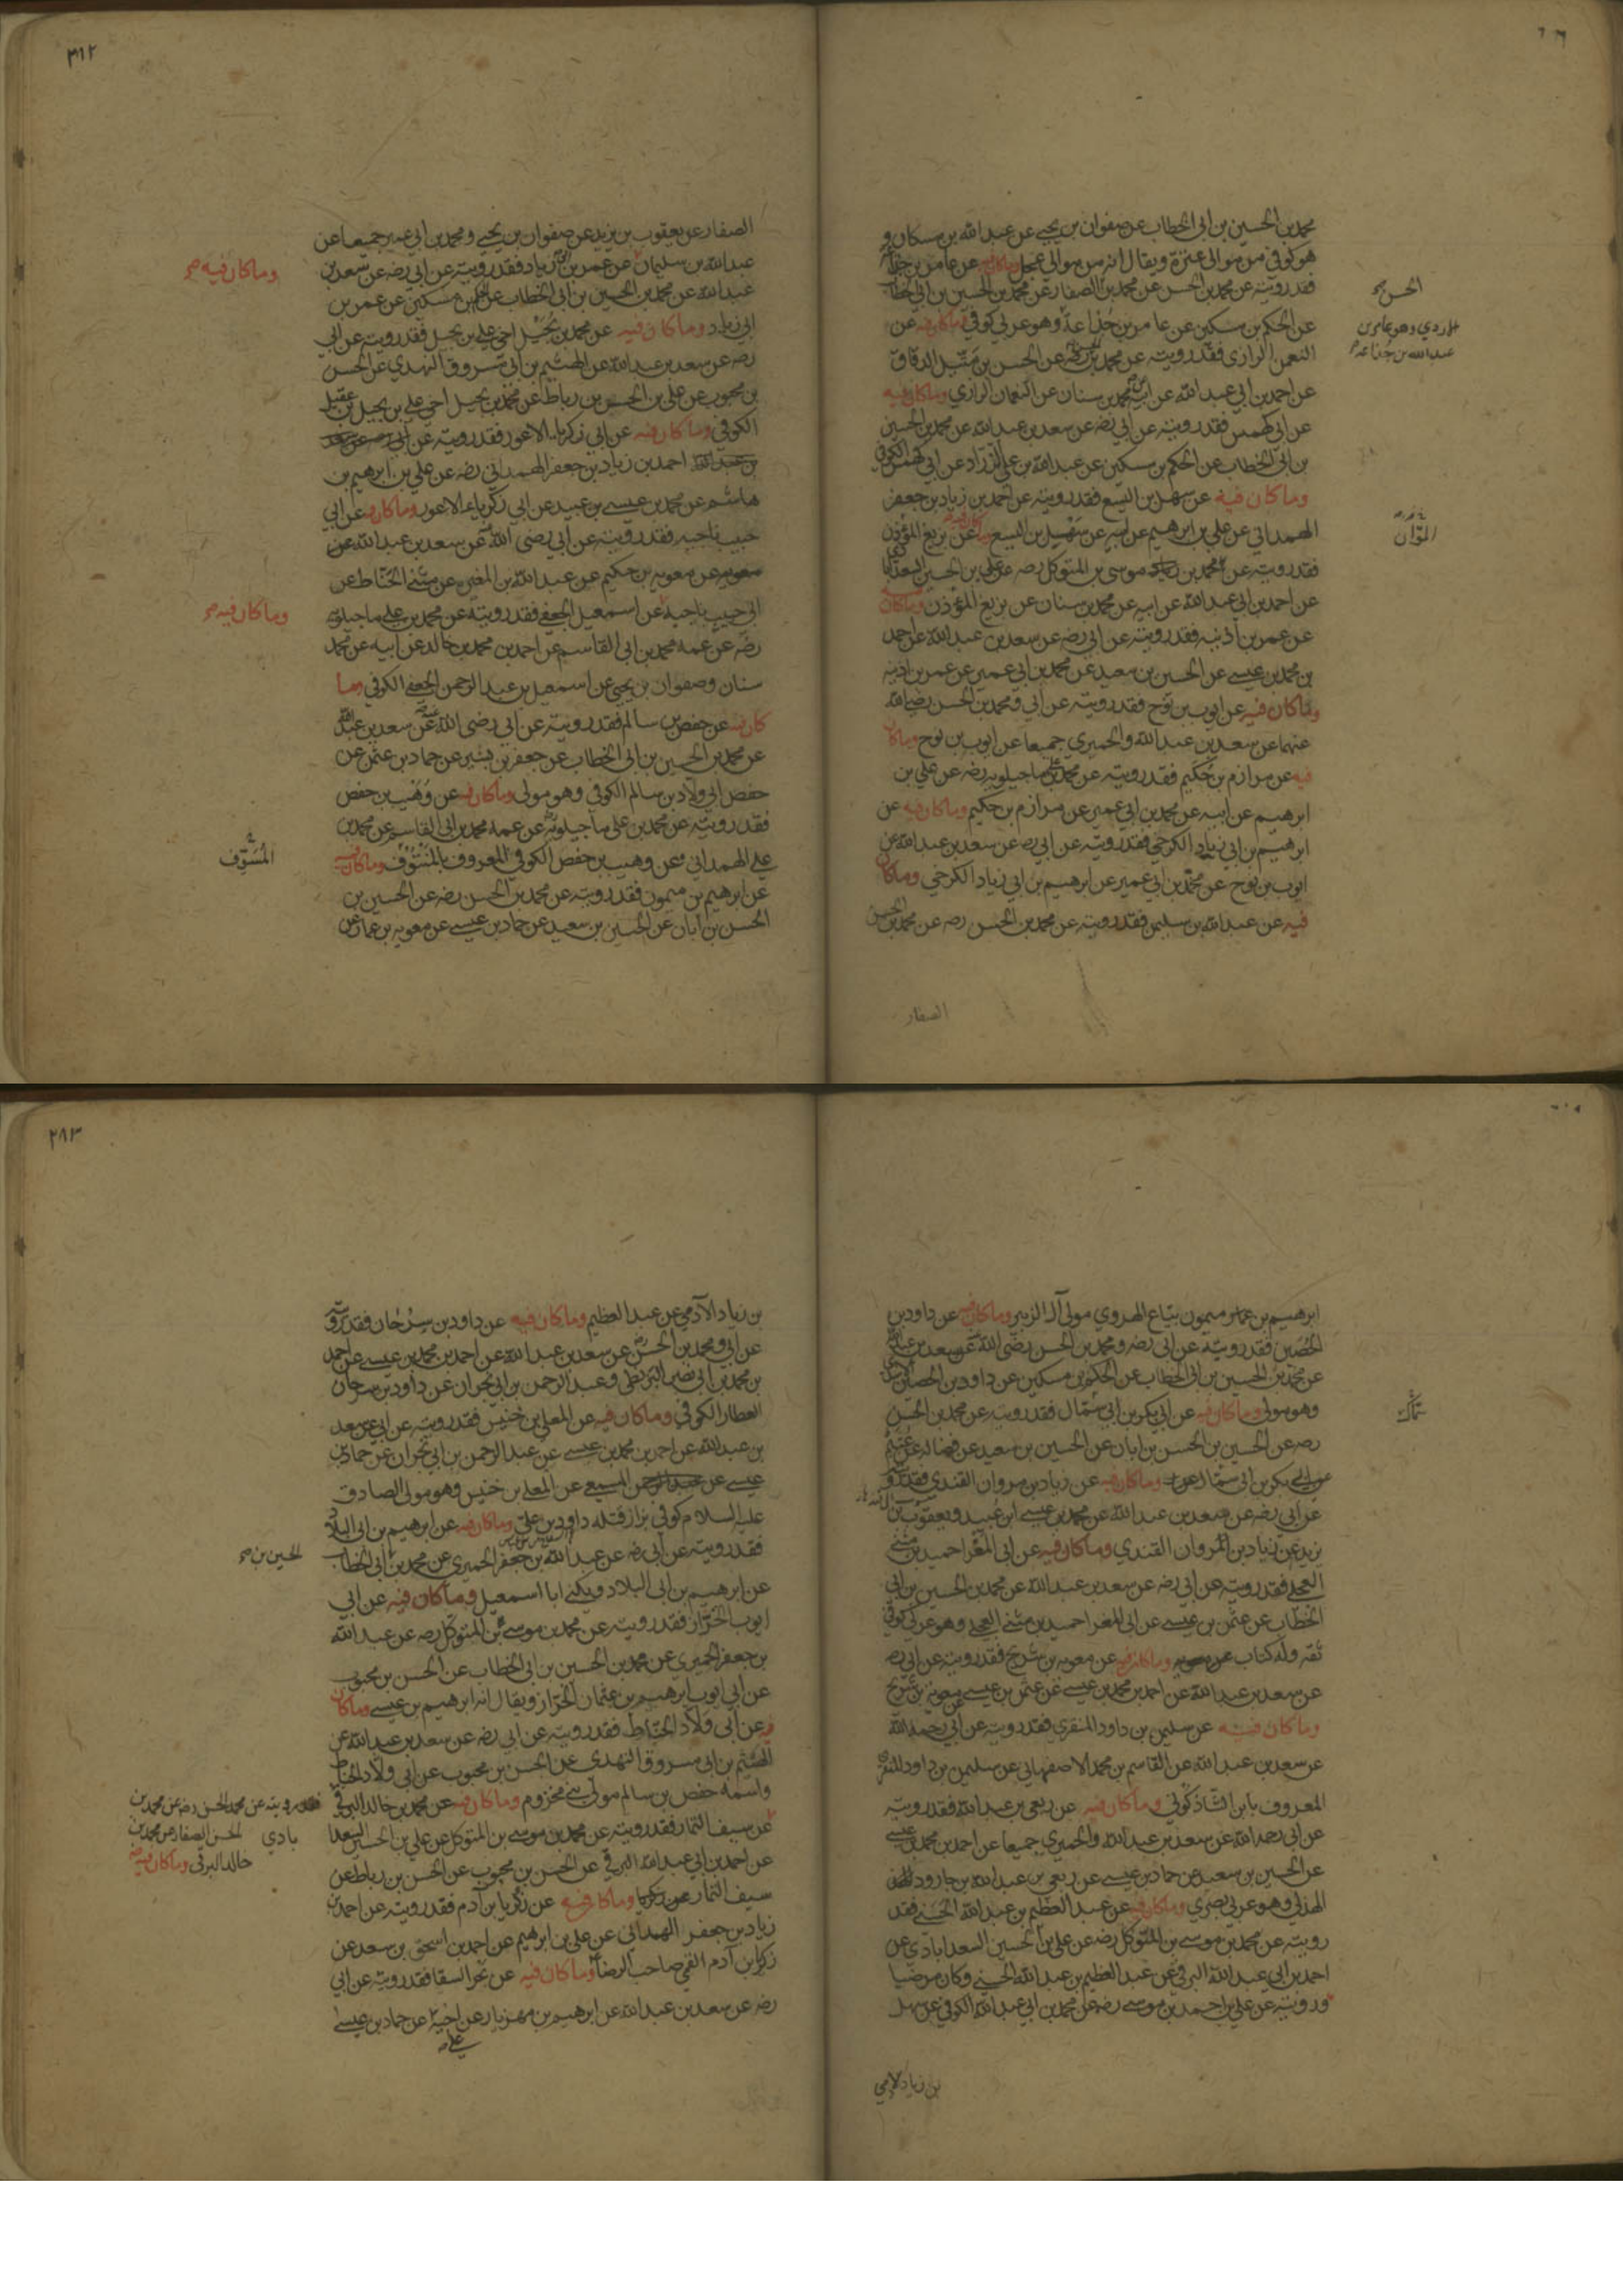 محمد بن الحسين بن ابي الخطاب عن صفوان بن يحيى عن عبد الله بن مسكان و
هو كوفي من موالي عنزة ويقال انه من موالي عجل وما كان فيه عن عامر بن جذاعة
فقد رويته عن محمد بن الحسن عن محمد بن الصفار عن محمد بن الحسين بن ابي الخطاب
الحسن صح
عن الحكم بن مسكين عن عامر بن جذاعة وهو عربي كوفي وما كان فيه عن
النعمن الرازي فقد رويته عن محمد بن عن الحسن بن متيل الدقاق
عن احمد بن ابي عبد الله عن ابيه عن محمد بن سنان عن النعمان الرازي وما كان فيه
عن ابي كهمس فقد رويته عن ابي رضه عن سعد بن عبد الله عن محمد بن الحسين
بن ابي الخطاب عن الحكم بن مسكين عن عبد الله بن علي الزراد عن ابي كهمس الكوفي
وما كان فيه عن سهل بن اليسع فقد رويته عن احمد بن زياد بن جعفر
الهمداني عن علي بن ابرهيم عن ابيه عن سهل بن اليسع وما كان فيه عن بزيع المؤذن
فقد رويته عن محمد بن موسى بن المتوكل رضه عن علي بن الحسين السعدابادي
عن احمد بن ابي عبد الله عن ابيه عن محمد بن سنان عن بزيع المؤذن وما كان
عن عمر بن اذينه فقد رويته عن ابي رضه عن سعد بن عبد الله عن احمد
بن محمد بن عيسى عن الحسين بن سعيد عن محمد بن ابي عمير عن عمر بن اذينه
وما كان فيه عن ايوب بن نوح فقد رويته عن ابي ومحمد بن الحسن رضي الله
عنهما عن سعد بن عبد الله والحميري جميعا عن ايوب بن نوح وما كان
فيه عن مرازم بن حكيم فقد رويته عن محمد بن علي ماجيلويه رضه عن علي بن
ابرهيم عن ابيه عن محمد بن ابي عمير عن مرازم بن حكيم وما كان فيه عن
ابرهيم بن ابي زياد الكرخي فقد رويته عن ابي رضه عن سعد بن عبد الله عن
ايوب بن نوح عن محمد بن ابي عمير عن ابرهيم بن ابي زياد الكرخي وما كان
فيه عن عبد الله بن سليمن فقد رويته عن محمد بن الحسن رضه عن محمد بن الحسن
الصفار
٣١٢
الصفار عن يعقوب بن يزيد عن صفوان بن يحيى ومحمد بن ابي عمير جميعا عن
عبد الله بن سليمان عن عمر بن ابي زياد فقد رويته عن ابي رضه عن سعد بن
وما كان فيه صح
عبد الله عن محمد بن الحسين بن ابي الخطاب عن الحكم بن مسكين عن عمر بن
ابي زياد وما كان فيه عن محمد بن بجيل اخي علي بن بجيل فقد رويته عن ابي
رضه عن سعد بن عبد الله عن الهيثم بن ابي مسروق النهدي عن الحسن
بن محبوب عن علي بن الحسن بن رباط عن محمد بن بجيل اخي علي بن بجيل بن عقيل
الكوفي وما كان فيه عن ابي زكريا الاعور فقد رويته عن
احمد بن زياد بن جعفر الهمداني رضه عن علي بن ابرهيم بن
هاشم عن محمد بن عيسى بن عبيد عن ابي زكرياء الاعور وما كان فيه عن ابي
حبيب ناجيه فقد رويته عن ابي رضي الله عنه عن سعد بن عبد الله عن
معويه بن حكيم عن عبد الله بن المغيره عن مثنى الحناط عن
ابي حبيب ناجيه عن اسمعيل الجعفي فقد رويته عن محمد بن علي ماجيلويه
وما كان فيه صح
رضه عن عمه محمد بن ابي القاسم عن احمد بن محمد بن خالد عن ابيه عن محمد
سنان وصفوان بن يحيى عن اسمعيل بن عبد الرحمن الجعفي الكوفي وما
كان فيه عن حفص بن سالم فقد رويته عن ابي رضي الله عنه عن سعد بن عبد الله
عن محمد بن الحسين بن ابي الخطاب عن جعفر بن بشير عن حماد بن عثمن عن
حفص ابي ولاد بن سالم الكوفي وهو مولى وما كان فيه عن وهيب بن حفص
فقد رويته عن محمد بن علي ماجيلويه عن عمه محمد بن ابي القاسم عن محمد بن
علي الهمداني وعن وهيب بن حفص الكوفي المعروف بالمنتوف وما كان فيه
عن ابرهيم بن ميمون فقد رويته عن محمد بن الحسن رضه عن الحسين بن
الحسن بن ابان عن الحسين بن سعيد عن حماد بن عيسى عن معويه بن عمار عن
ابرهيم بن ميمون بياع الهروي مولى آل الزبير وما كان فيه عن داود بن
الحصين فقد رويته عن ابي رضه ومحمد بن الحسن رضي الله عنه عن سعد بن عبد الله
عن محمد بن الحسين بن ابي الخطاب عن الحكم بن مسكين عن داود بن الحصين
وهو مولى وما كان فيه عن ابي بكر بن ابي سمال فقد رويته عن محمد بن الحسن
رضه عن الحسين بن الحسن بن ابان عن الحسين بن سعيد عن فضاله عن
عن ابي بكر بن ابي سمال وما كان فيه عن زياد بن مروان القندي فقد رويته
عن ابي رضه عن سعد بن عبد الله عن محمد بن عيسى ابن عبيد ويعقوب بن
يزيد عن زياد بن المروان القندي وما كان فيه عن ابي المغرا حميد بن مثنى
العجلي فقد رويته عن ابي رضه عن سعد بن عبد الله عن محمد بن الحسين بن ابي
الخطاب عن عثمن بن عيسى عن ابي المغرا حميد بن مثنى العجلي وهو عربي كوفي
ثقه وله كتاب وما كان فيه عن معويه بن شريح فقد رويته عن ابي رضه
عن سعد بن عبد الله عن احمد بن محمد بن عيسى عن عثمن بن عيسى عن معويه بن شريح
وما كان فيه عن سليمن بن داود المنقري فقد رويته عن ابي رحمه الله
عن سعد بن عبد الله عن القاسم بن محمد الاصفهاني عن سليمن بن داود المنقري
المعروف بابن الشاذكوني وما كان فيه عن ربعي بن عبد الله فقد رويته
عن ابي رحمه الله عن سعد بن عبد الله والحميري جميعا عن احمد بن محمد بن عيسى
عن الحسين بن سعيد عن حماد بن عيسى عن ربعي بن عبد الله بن جارود
الهذلي وهو عربي بصري وما كان فيه عن عبد العظيم بن عبد الله الحسني فقد
رويته عن محمد بن موسى بن المتوكل رضه عن علي بن الحسين السعدابادي عن
احمد بن ابي عبد الله البرقي عن عبد العظيم بن عبد الله الحسني وكان مرضيا
ورويته عن علي بن احمد بن موسى رضه عن محمد بن ابي عبد الله الكوفي عن سهل
بن زياد الادمي
٢٨٣
بن زياد الآدمي عن عبد العظيم وما كان فيه عن داود بن سرحان فقد رويته
عن ابي ومحمد بن الحسن رضه عن سعد بن عبد الله عن احمد بن محمد بن عيسى عن احمد
بن محمد بن ابي نصر البزنطي وعبد الرحمن بن ابي نجران عن داود بن سرحان
العطار الكوفي وما كان فيه عن المعلى بن خنيس فقد رويته عن ابي عن سعد
بن عبد الله عن احمد بن محمد بن عيسى عن عبد الرحمن بن ابي نجران عن حماد بن
عيسى عن المسمعي عن المعلى بن خنيس وهو مولى الصادق
عليه السلام كوفي بزاز قتله داود بن علي وما كان فيه عن ابرهيم بن ابي البلاد
فقد رويته عن ابي رضه عن عبد الله بن جعفر الحميري عن محمد بن ابي الخطاب
الحسين بن صح
عن ابرهيم بن ابي البلاد ويكنى ابا اسمعيل وما كان فيه عن ابي
ايوب الخزاز فقد رويته عن محمد بن موسى بن المتوكل رضه عن عبد الله
بن جعفر الحميري عن محمد بن الحسين بن ابي الخطاب عن الحسن بن محبوب
عن ابي ايوب ابرهيم بن عثمان الخزاز ويقال انه ابرهيم بن عيسى وما كان
فيه عن ابي ولاد الحناط فقد رويته عن ابي رضه عن سعد بن عبد الله عن
الهيثم بن ابي مسروق النهدي عن الحسن بن محبوب عن ابي ولاد الحناط
واسمه حفص بن سالم مولى بني مخزوم وما كان فيه عن محمد بن خالد البرقي
فقد رويته عن محمد الحسن رضه عن محمد بن
الحسن الصفار عن محمد بن
خالد البرقي وما كان فيه
عن سيف التمار فقد رويته عن محمد بن موسى بن المتوكل عن علي بن الحسين السعدا
بادي
عن احمد بن ابي عبد الله البرقي عن الحسن بن محبوب عن الحسن بن رباط عن
سيف التمار وما كان فيه عن زكريا بن آدم فقد رويته عن احمد بن
زياد بن جعفر الهمداني عن علي بن ابرهيم عن احمد بن اسحق بن سعد عن
زكريا بن آدم القمي صاحب الرضا وما كان فيه عن بحر السقا فقد رويته عن ابي
رضه عن سعد بن عبد الله عن ابرهيم بن مهزيار عن اخيه عن حماد بن عيسى
علي صح